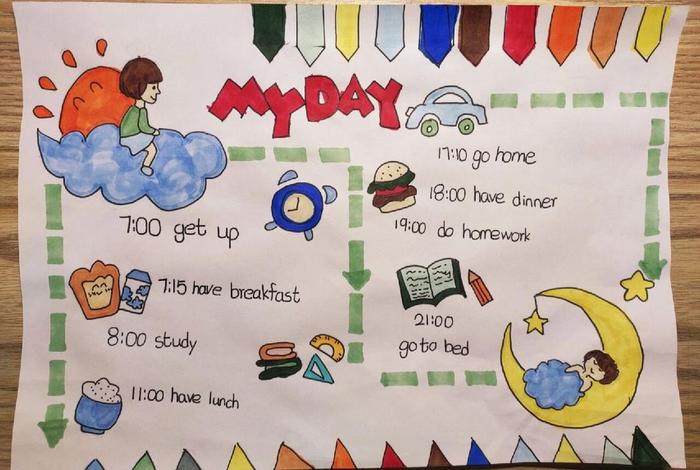 MY DAY
7:00 get up
7:15 have breakfast
8:00 study
11:00 have lunch
17:10 go home
18:00 have dinner
19:00 do homework
21:00
go to bed